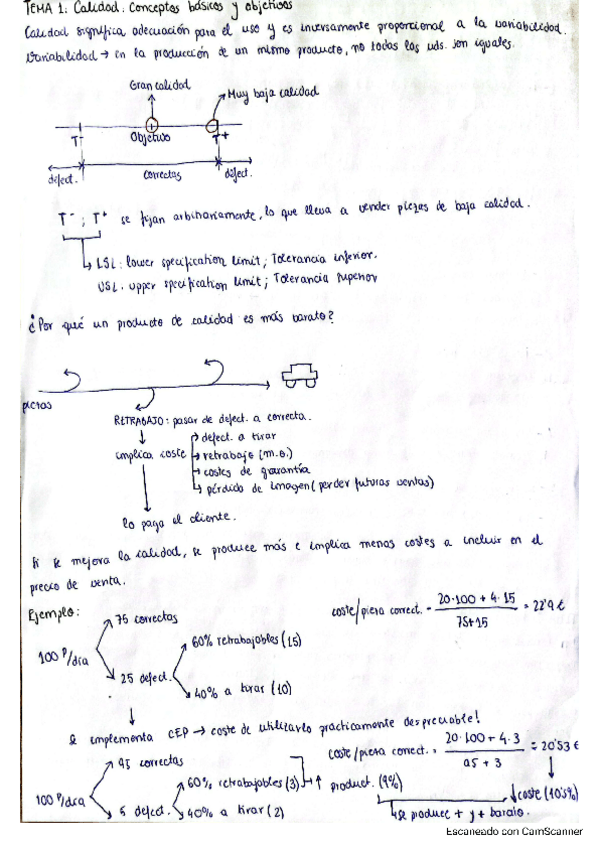 TEMA 1: Calidad. Conceptos básicos y objetivos
Calidad significa adecuación para el uso y es inversamente proporcional a la variabilidad.
Variabilidad → en la producción de un mismo producto, no todas las uds. son iguales.
Gran calidad
Muy baja calidad
T⁻ Objetivo T⁺
defect. correctas defect.
T⁻ ; T⁺ se fijan arbitrariamente, lo que lleva a vender piezas de baja calidad.
LSL: lower specification limit; Tolerancia inferior.
USL: upper specification limit; Tolerancia superior
¿Por qué un producto de calidad es más barato?
piezas
RETRABAJO: pasar de defect. a correcta.
implica coste
defect. a tirar
retrabajo (m.o.)
costes de garantía
pérdida de imagen (perder futuras ventas)
lo paga el cliente.
Si se mejora la calidad, se produce más e implica menos costes a incluir en el
precio de venta.
Ejemplo:
100 P/día
75 correctas
25 defect.
60% retrabajables (15)
40% a tirar (10)
coste/pieza correct. = (20·100 + 4·15) / (75+15) = 22'9 €
Se implementa CEP → coste de utilizarlo prácticamente despreciable!
100 P/día
95 correctas
5 defect.
60% retrabajables (3)
40% a tirar (2)
coste/pieza correct. = (20·100 + 4·3) / (95 + 3) = 20'53 €
↑ product. (9%)
↓ coste (10'5%)
Se produce + y + barato.
Escaneado con CamScanner